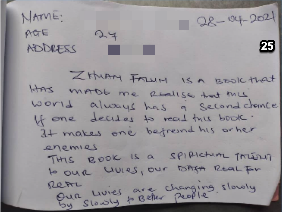 NAME:
28-04-2021
AGE 27
ADDRESS
25
ZHUAN FALUN IS A BOOK that
HAS MADE me REALISE that this
world always has a second chance
if one decides to read this book.
It makes one befriend his or her
enemies
THIS BOOK IS A SPIRITUAL TALENT
to our LIVES, our DATA REAL FOR
REAL
OUR LIVES are changing slowly
by slowly to Better People